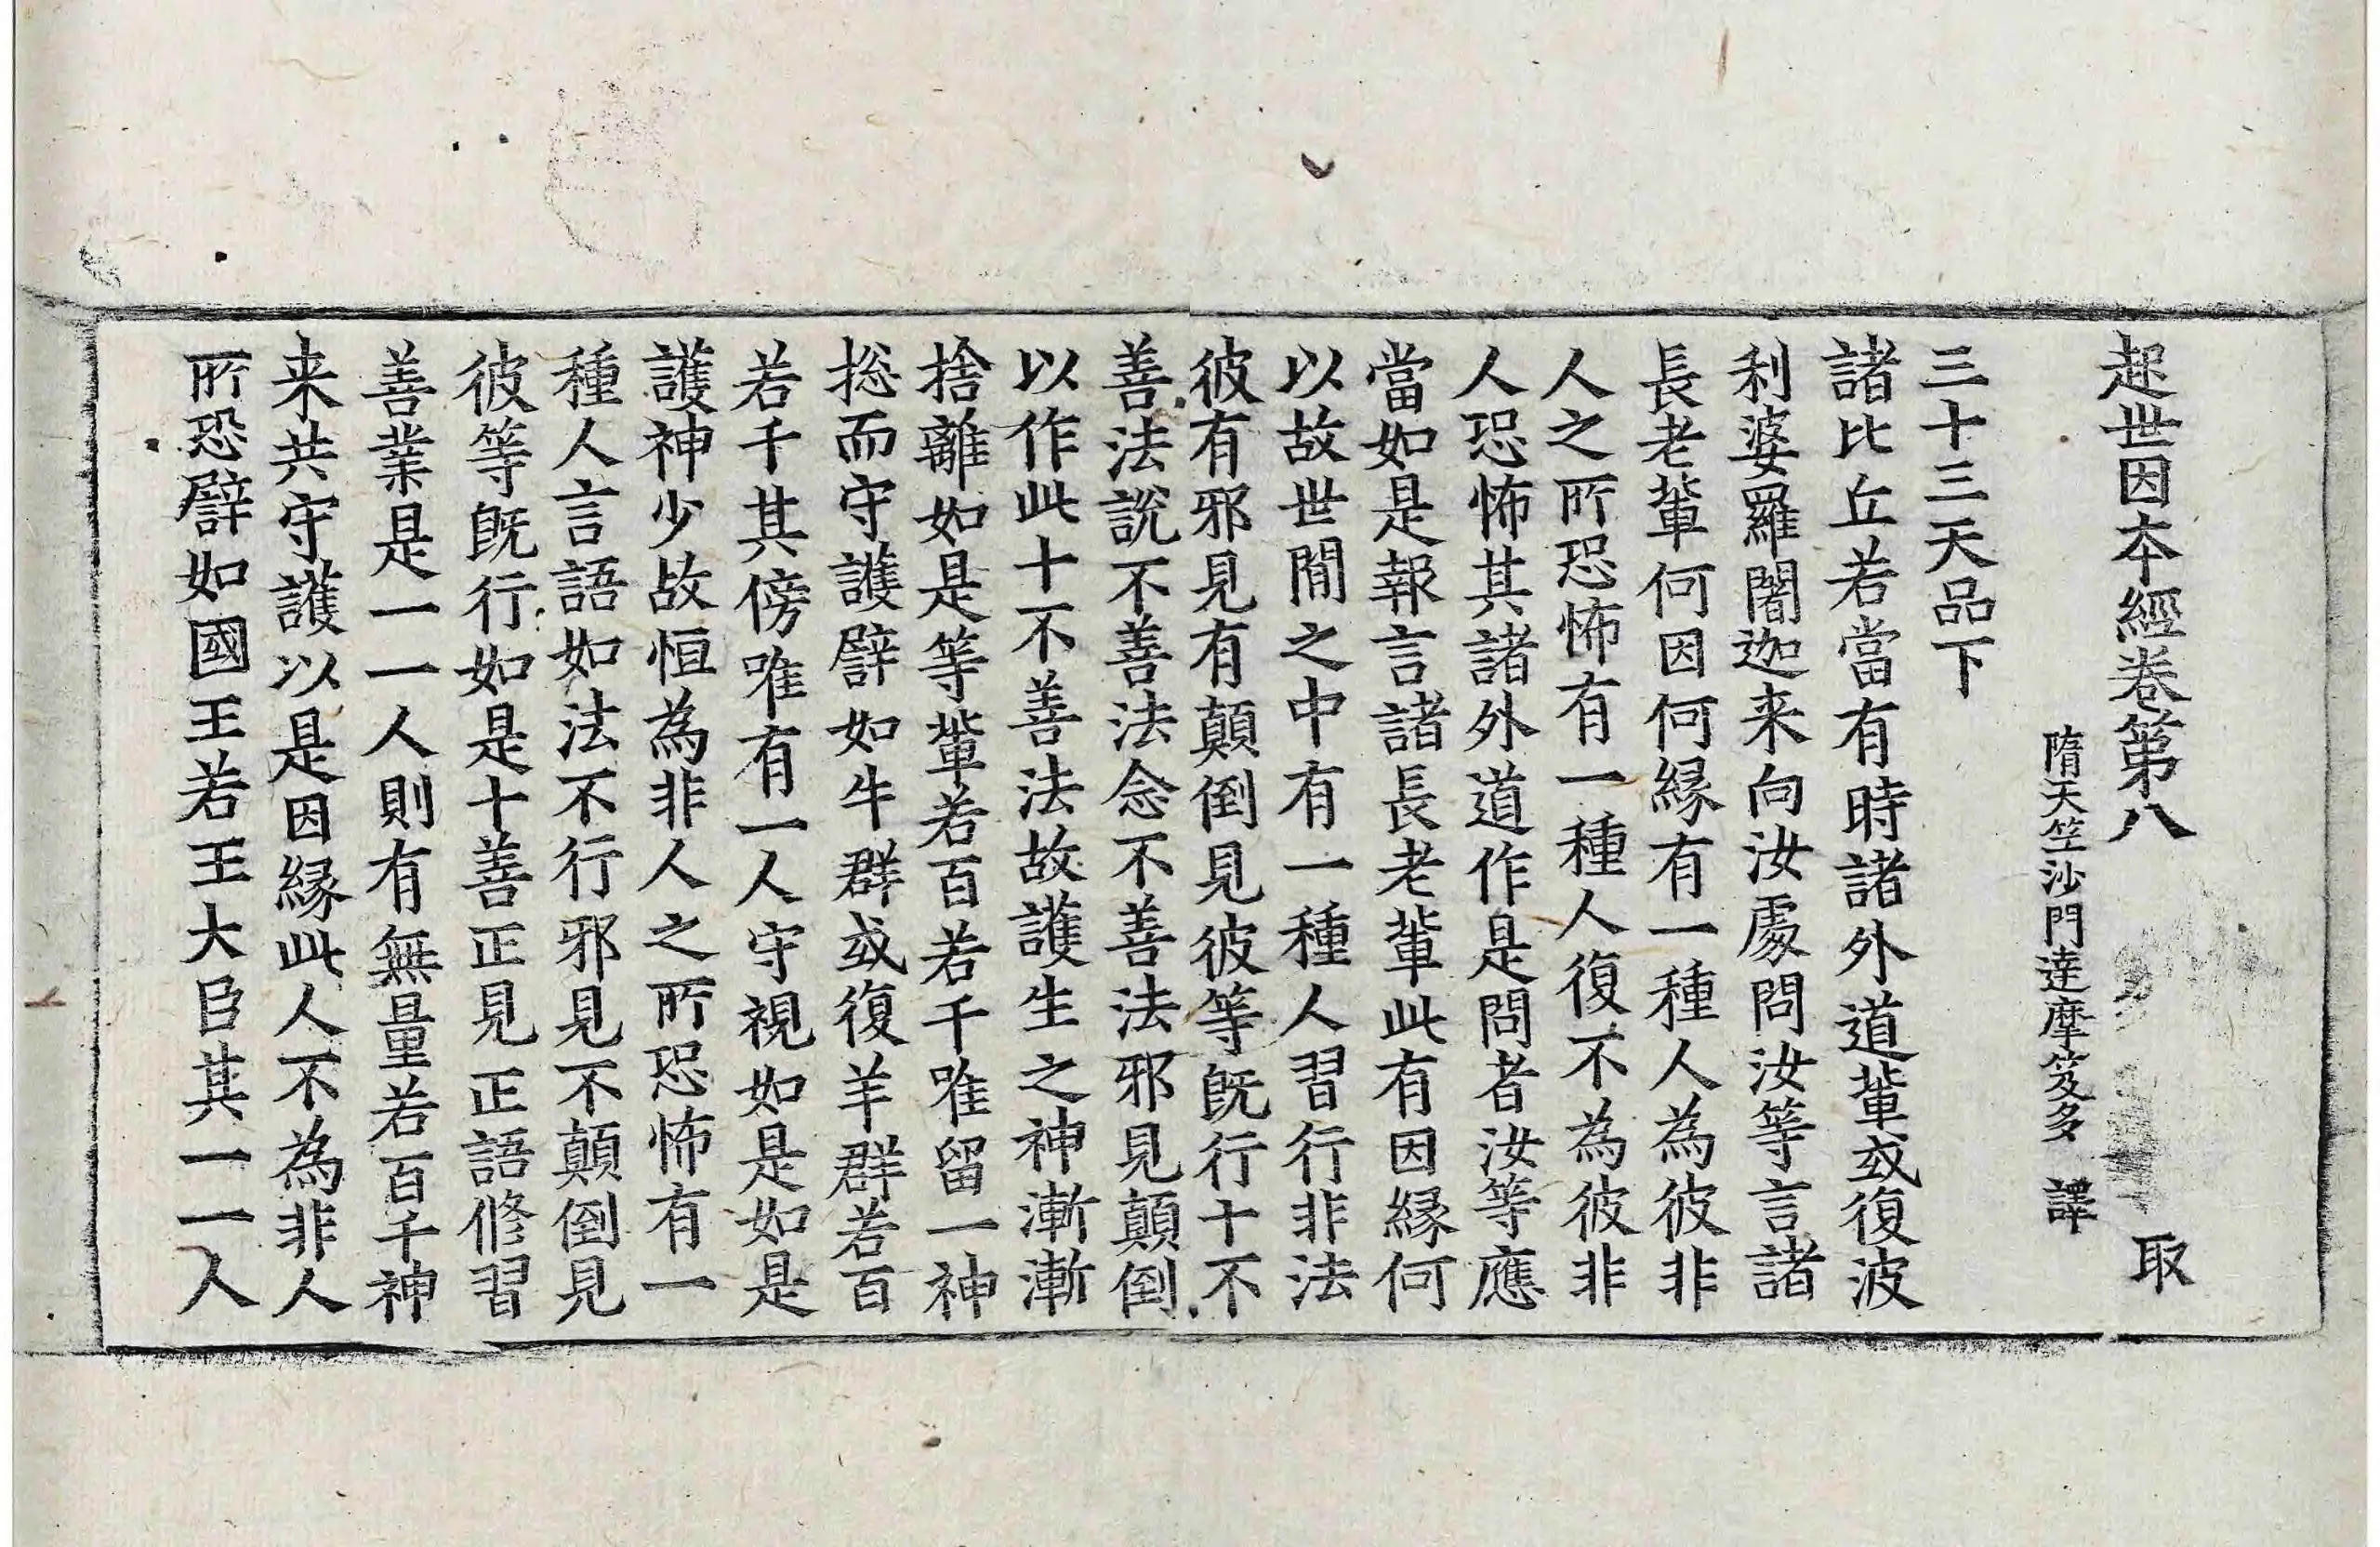 起世因本經卷第八 取
隋天竺沙門達摩笈多 譯
三十三天品下
諸比丘若當有時諸外道輩或復波
利婆羅闍迦来向汝處問汝等言諸
長老輩何因何縁有一種人為彼非
人之所恐怖有一種人復不為彼非
人恐怖其諸外道作是問者汝等應
當如是報言諸長老輩此有因縁何
以故世間之中有一種人習行非法
彼有邪見有顛倒見彼等既行十不
善法說不善法念不善法邪見顛倒
以作此十不善法故護生之神漸漸
捨離如是等輩若百若千唯留一神
捴而守護譬如牛群或復羊群若百
若千其傍唯有一人守視如是如是
護神少故恒為非人之所恐怖有一
種人言語如法不行邪見不顛倒見
彼等既行如是十善正見正語修習
善業是一一人則有無量若百千神
来共守護以是因縁此人不為非人
所恐譬如國王若王大臣其一一人